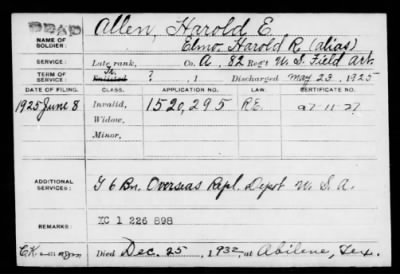 DEAD
Allen, Harold E.
NAME OF SOLDIER: Elmo Harold R. (alias)
SERVICE: Late rank, Co. A, 82 Reg't U.S. Field Art.
TERM OF SERVICE: Enlisted ?, 1 Discharged May 23, 1925
DATE OF FILING. CLASS. APPLICATION NO. LAW. CERTIFICATE NO.
1925 June 8 Invalid, 1520,295 R.E.
Widow,
Minor,
ADDITIONAL SERVICES: G 6 Bn. Overseas Repl. Depot U.S.A.
REMARKS: XC 1 226 898
Died Dec. 25, 1932, at Abilene, Tex.